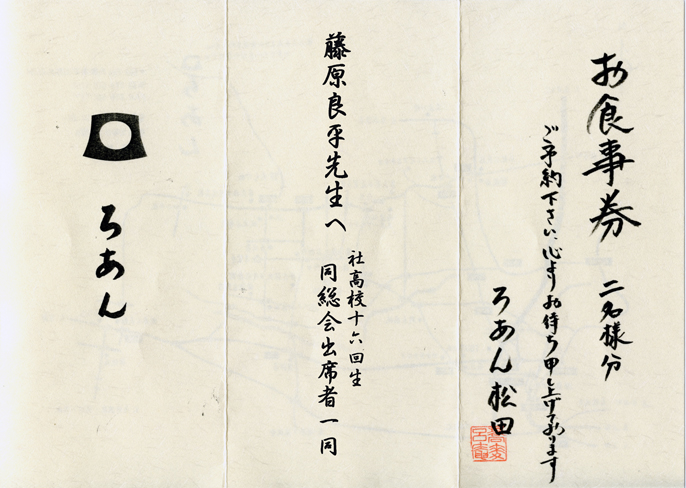 お食事券 二名様分
ご予約下さい、心よりお待ち申し上げております
ろあん松田
藤原良平先生へ
社高校十六回生
同総会出席者一同
ろあん